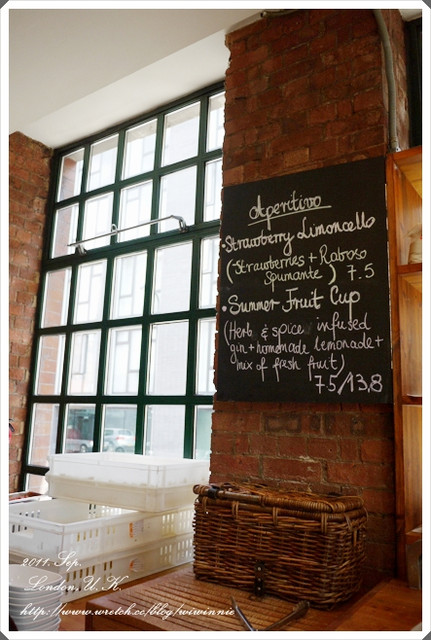 Aperitivo
·Strawberry Limoncello
(Strawberries + Raboso
Spumante) 7.5
·Summer Fruit Cup
(Herb & spice infused
gin + homemade lemonade +
mix of fresh fruit)
7.5/13,8
2011. Sep.
London, U. K.
http://www.wretch.cc/blog/wiwinnie